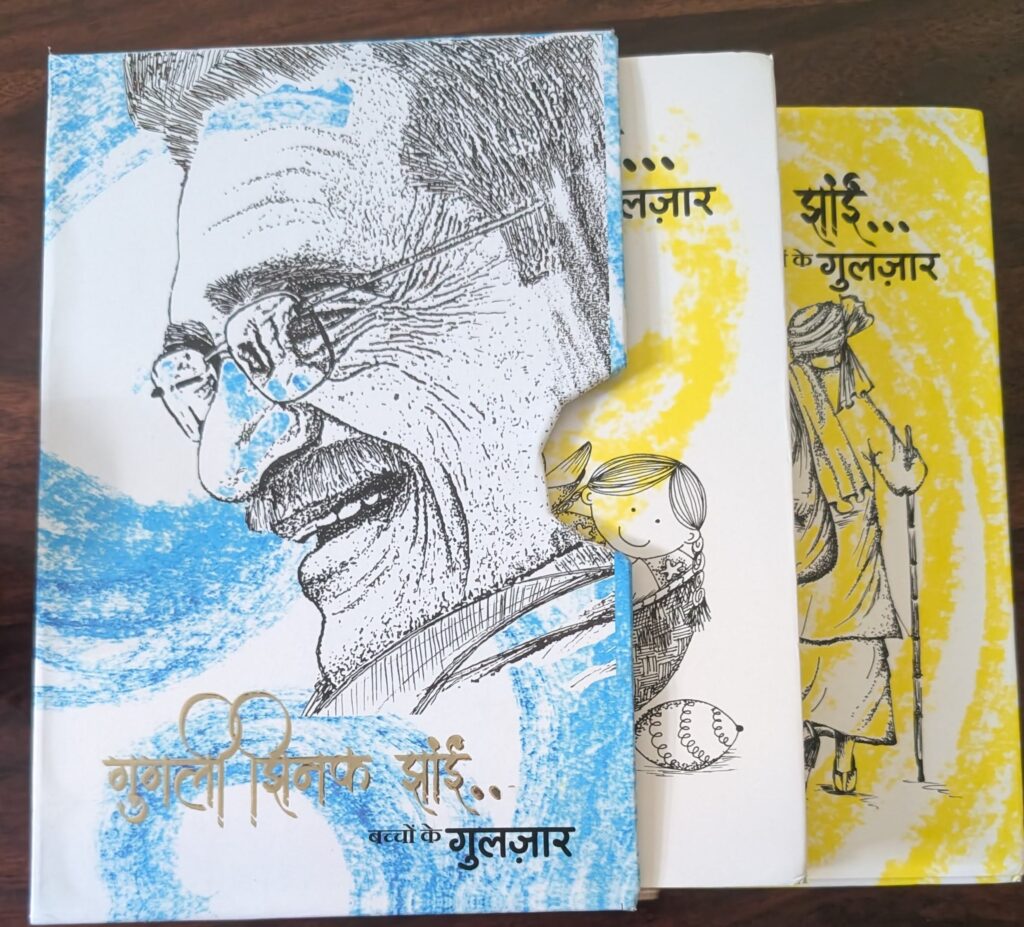 गुगली झिनफ झांई..
बच्चों के गुलज़ार
...
लज़ार
झांई...
के गुलज़ार